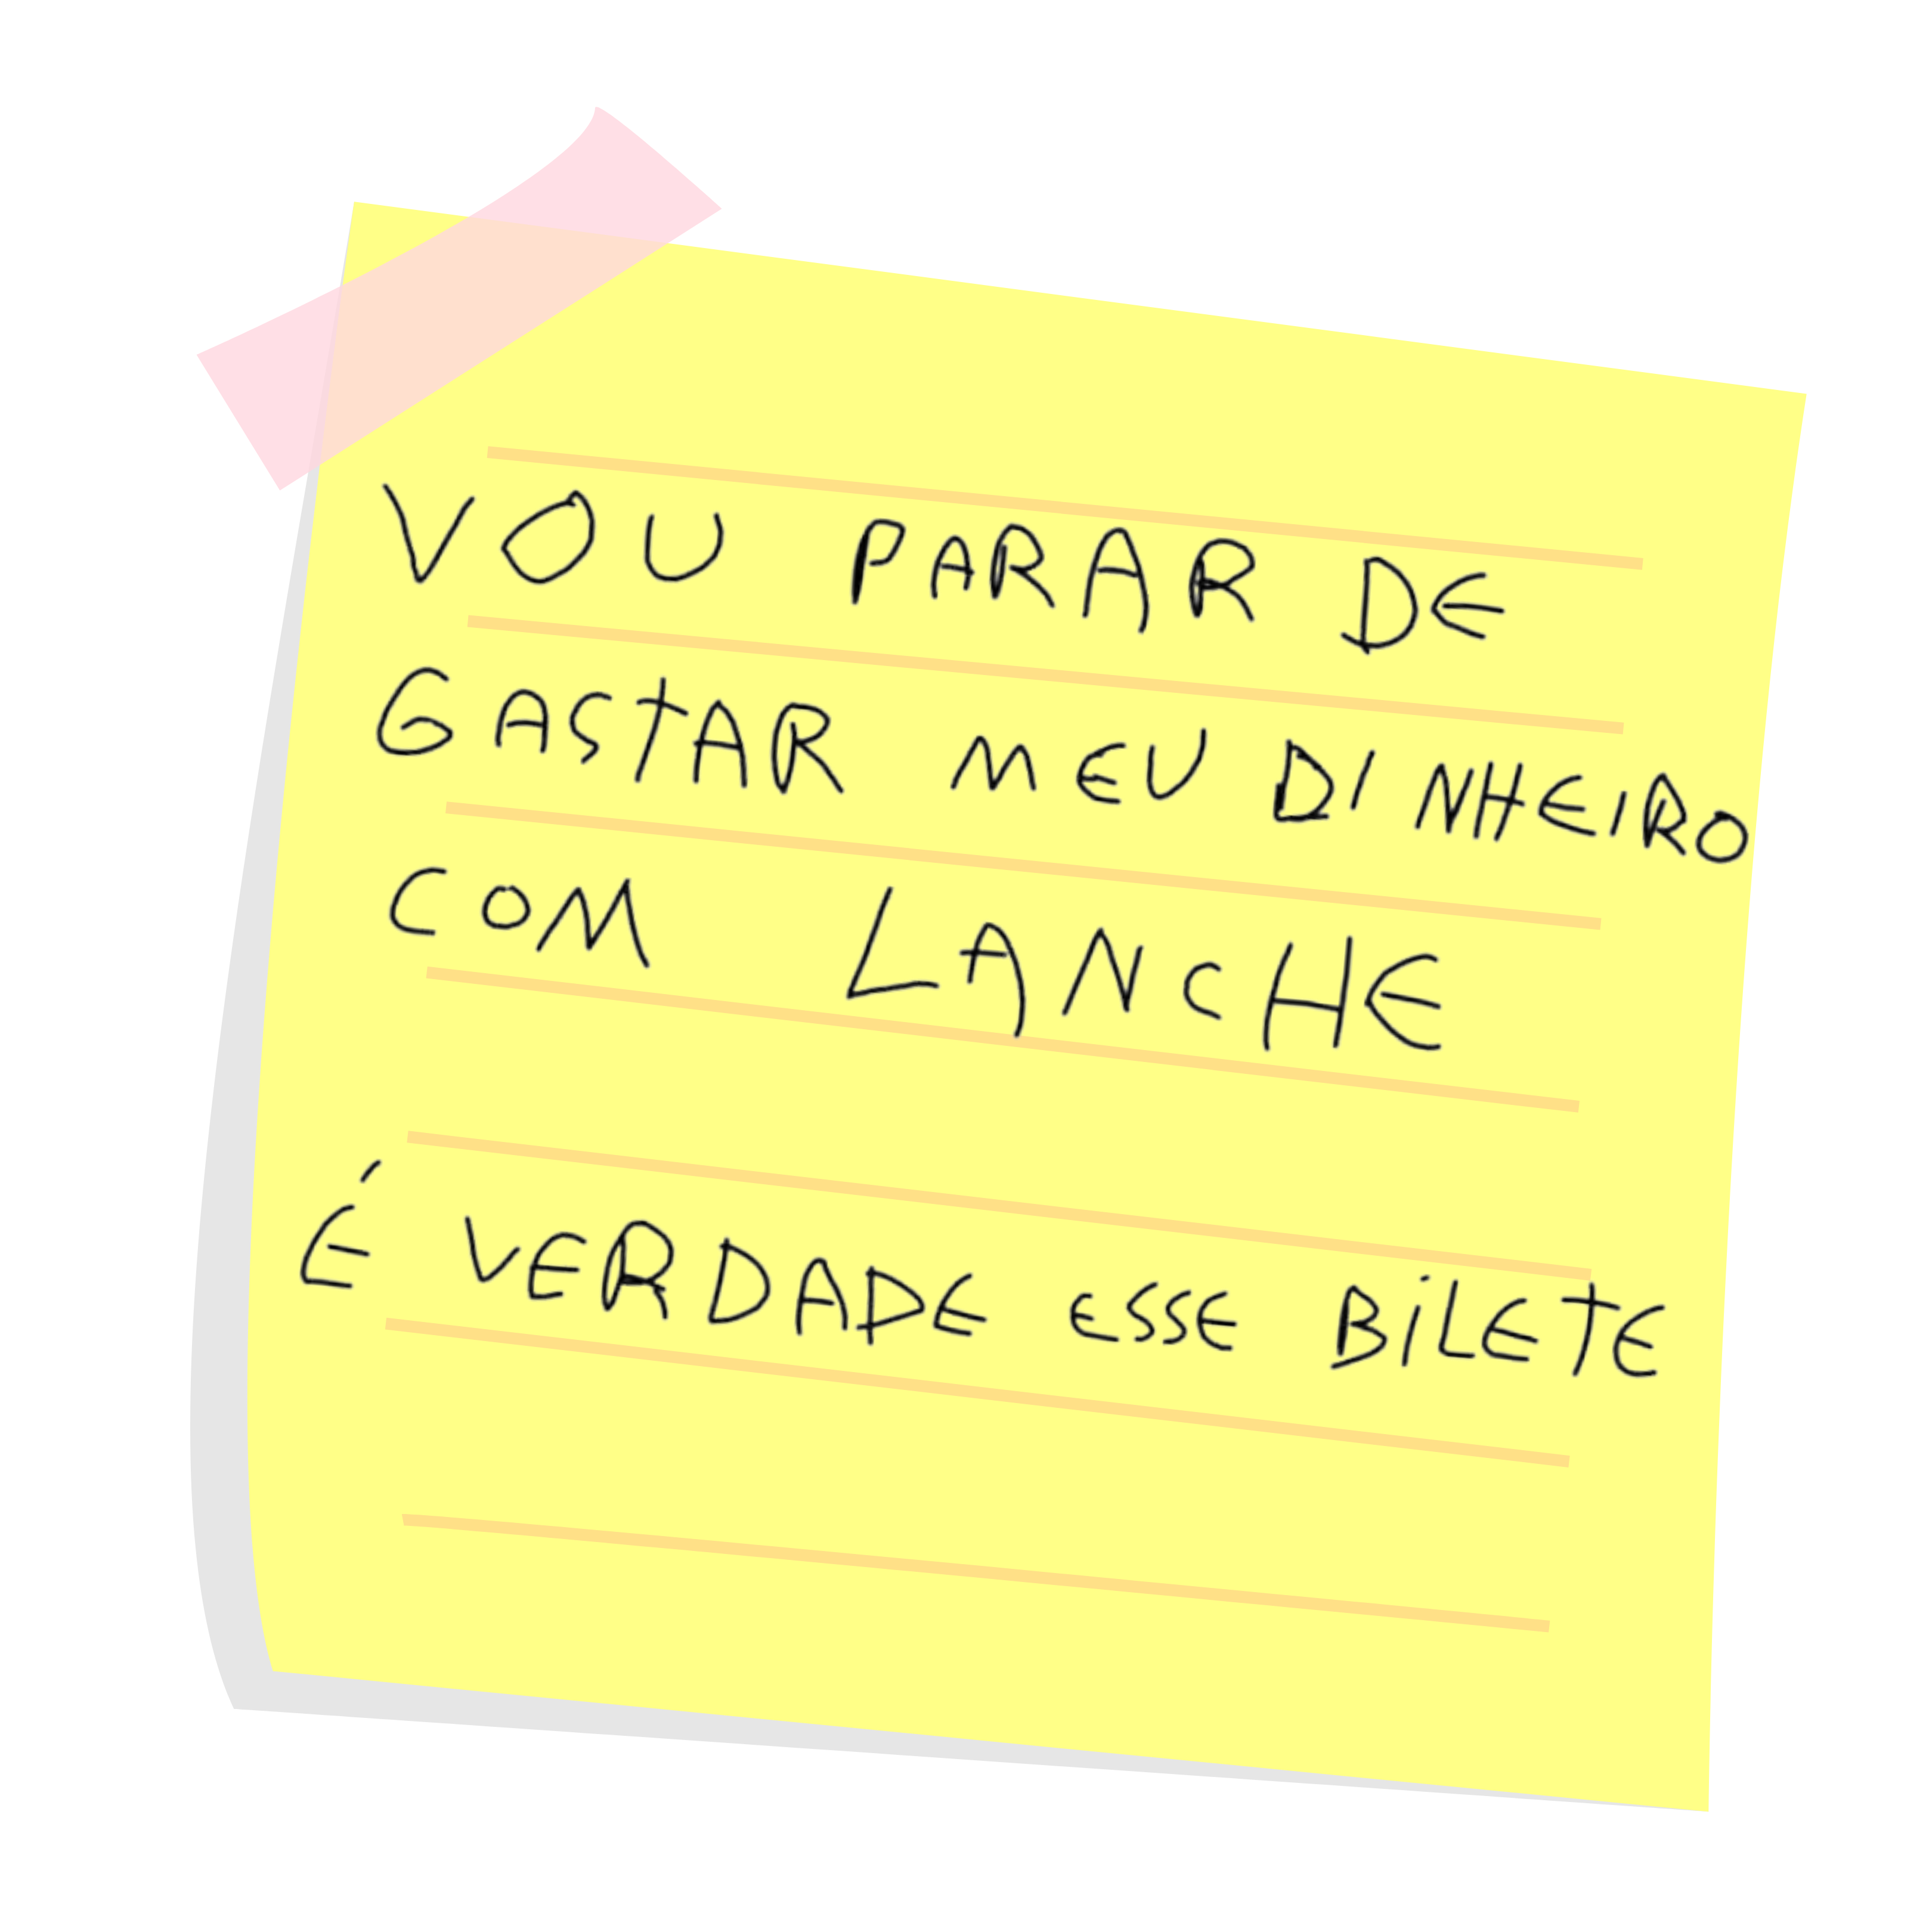 VOU PARAR DE
GASTAR MEU DINHEIRO
COM LANCHE
É VERDADE ESSE BILETE